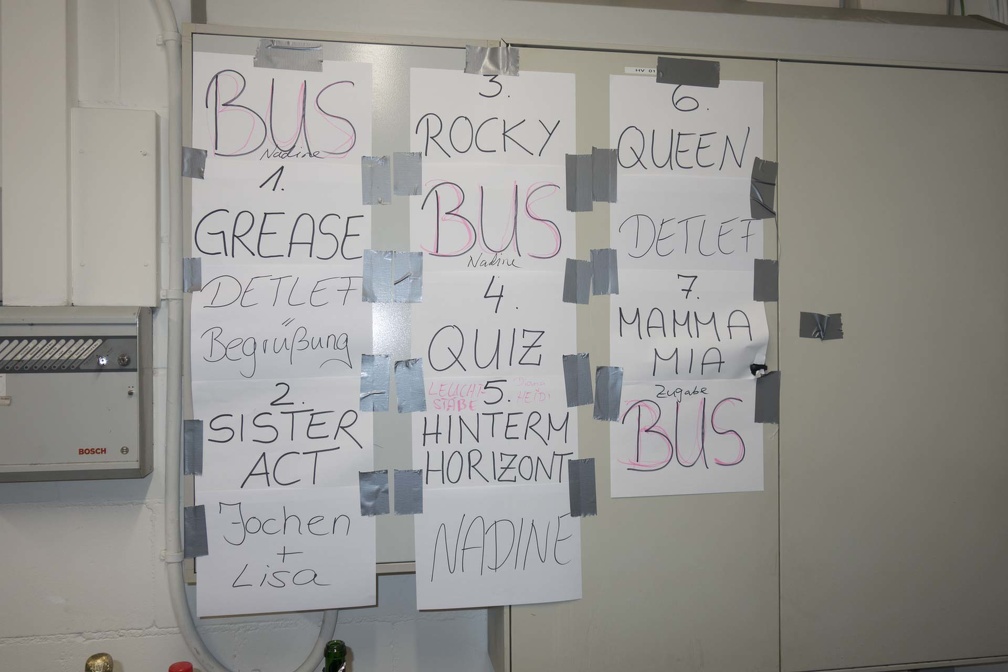 BUS
Nadine
1.
GREASE
DETLEF
Begrüßung
2.
SISTER
ACT
Jochen
+
Lisa
3.
ROCKY
BUS
Nadine
4.
QUIZ
LEUCHT-
STÄBE
5.
HINTERM
HORIZONT
NADINE
6.
QUEEN
DETLEF
7.
MAMMA
MIA
Zugabe
BUS
BOSCH